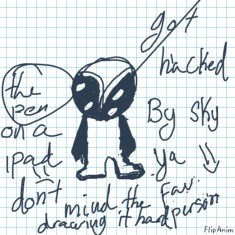 got
hacked
By sky
ya
fav.
person
the
pen
on a
ipad
don't mind the
drawing it hard
FlipAnim